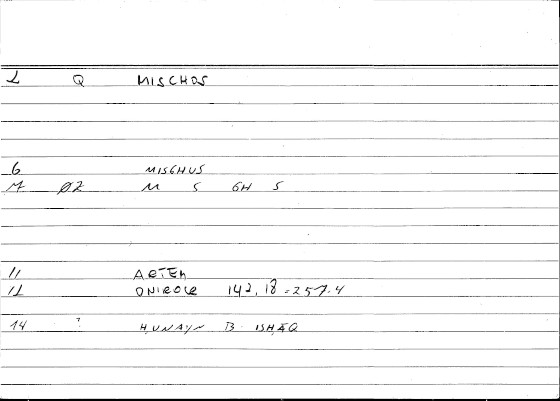 1 Q MISCHOS
6 MISGHUS
7 ØZ M S GH S
11 ARTEM
12 ONIROCR 142,18 = 257.4
14 ? ḤUNAYN B ISḤĀQ